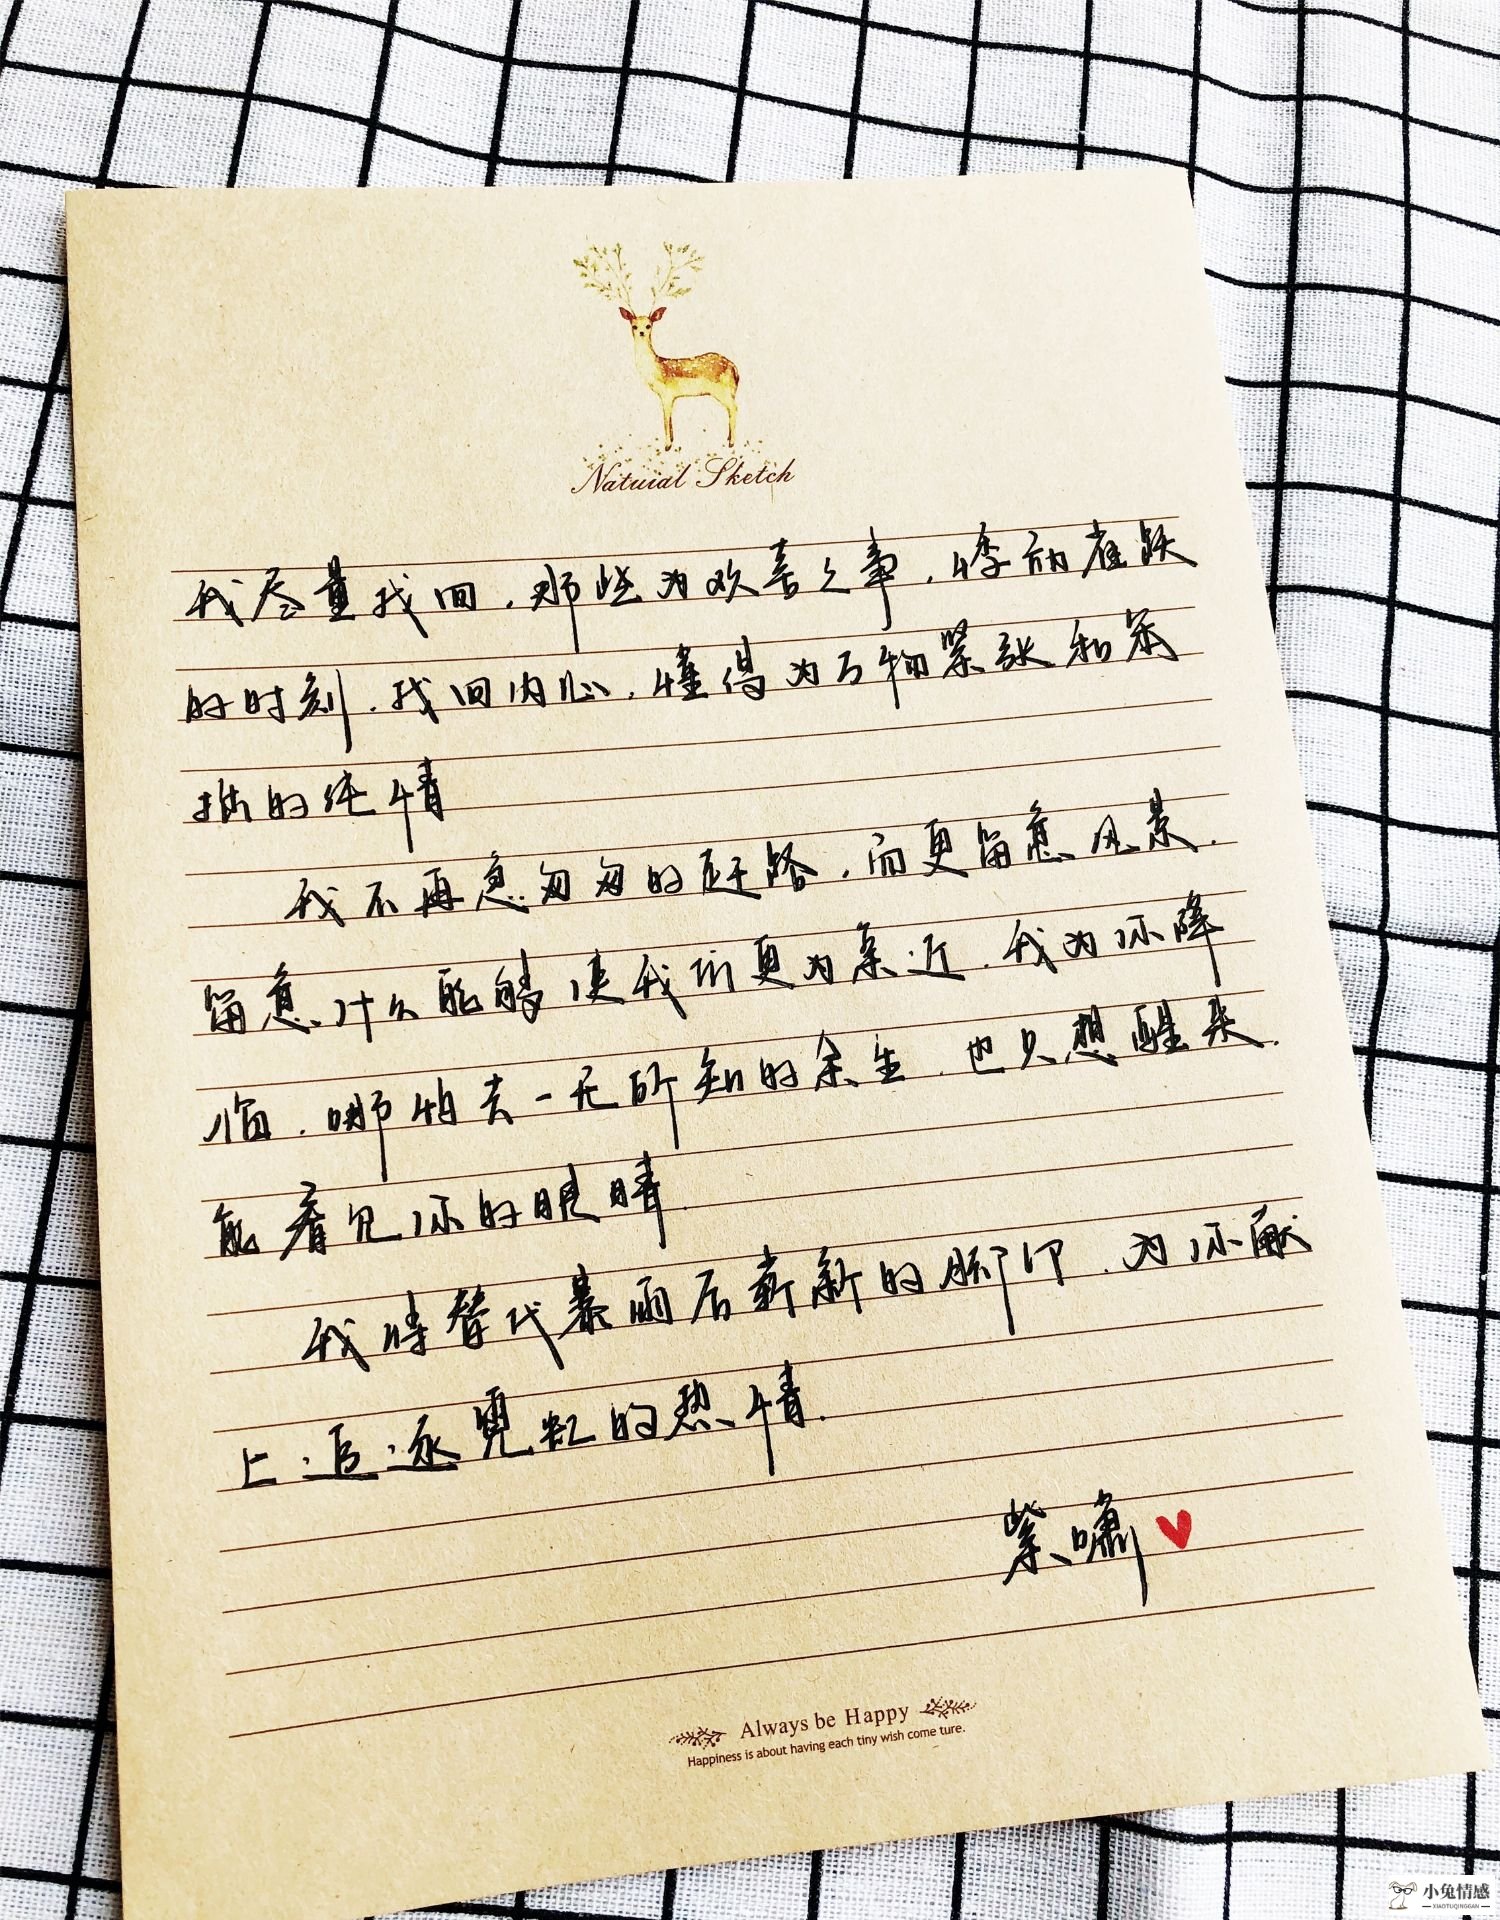 Natural Sketch
我尽量找回，那些为欢喜之事，悸动雀跃
的时刻．找回内心，懂得为万物紧张和笨
拙的纯情
我不再急匆匆的赶路，而更留意风景．
留意什么能够使我们更为亲近．我为你降
临．哪怕去一无所知的余生．也只想醒来．
能看见你的眼睛．
我将替代暴雨后崭新的脚印．为你献
上追逐霓虹的热情．
紫啸
Always be Happy
Happiness is about having each tiny wish come ture.
小兔情感
XIAOTUQINGGAN